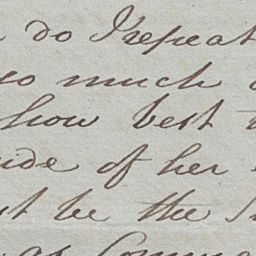 do I repeat
so much
how best
side of her
be the